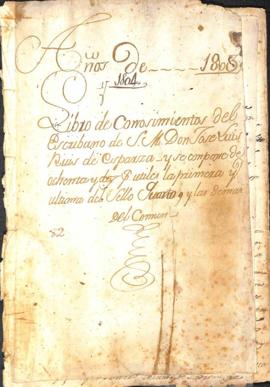 Años de 1803
y 1804
Libro de Conosimientos del
Escribano de S. M. Don Jose Luis
Ruis de Esparza y se compone de
ochenta y dos utiles la primera y
ultima del Sello Quarto y las demas
del Comun
82